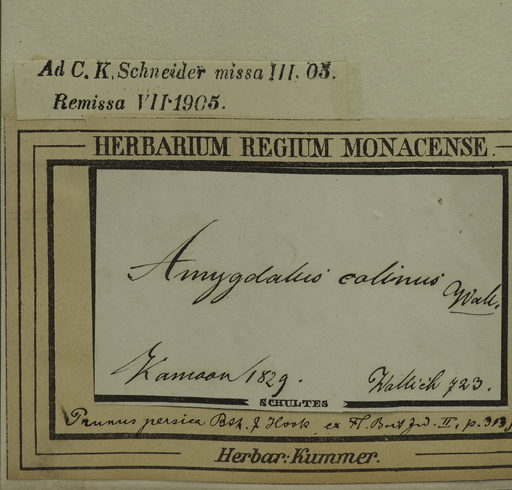 Ad C. K. Schneider missa III. 05.
Remissa VII·1905.
HERBARIUM REGIUM MONACENSE.
Amygdalus colinus Wall.
Kamoon 1829. Wallich 723.
SCHULTES
Prunus persica Bth. & Hook. ex Fl. Brit Ind. II, p. 313
Herbar: Kummer.